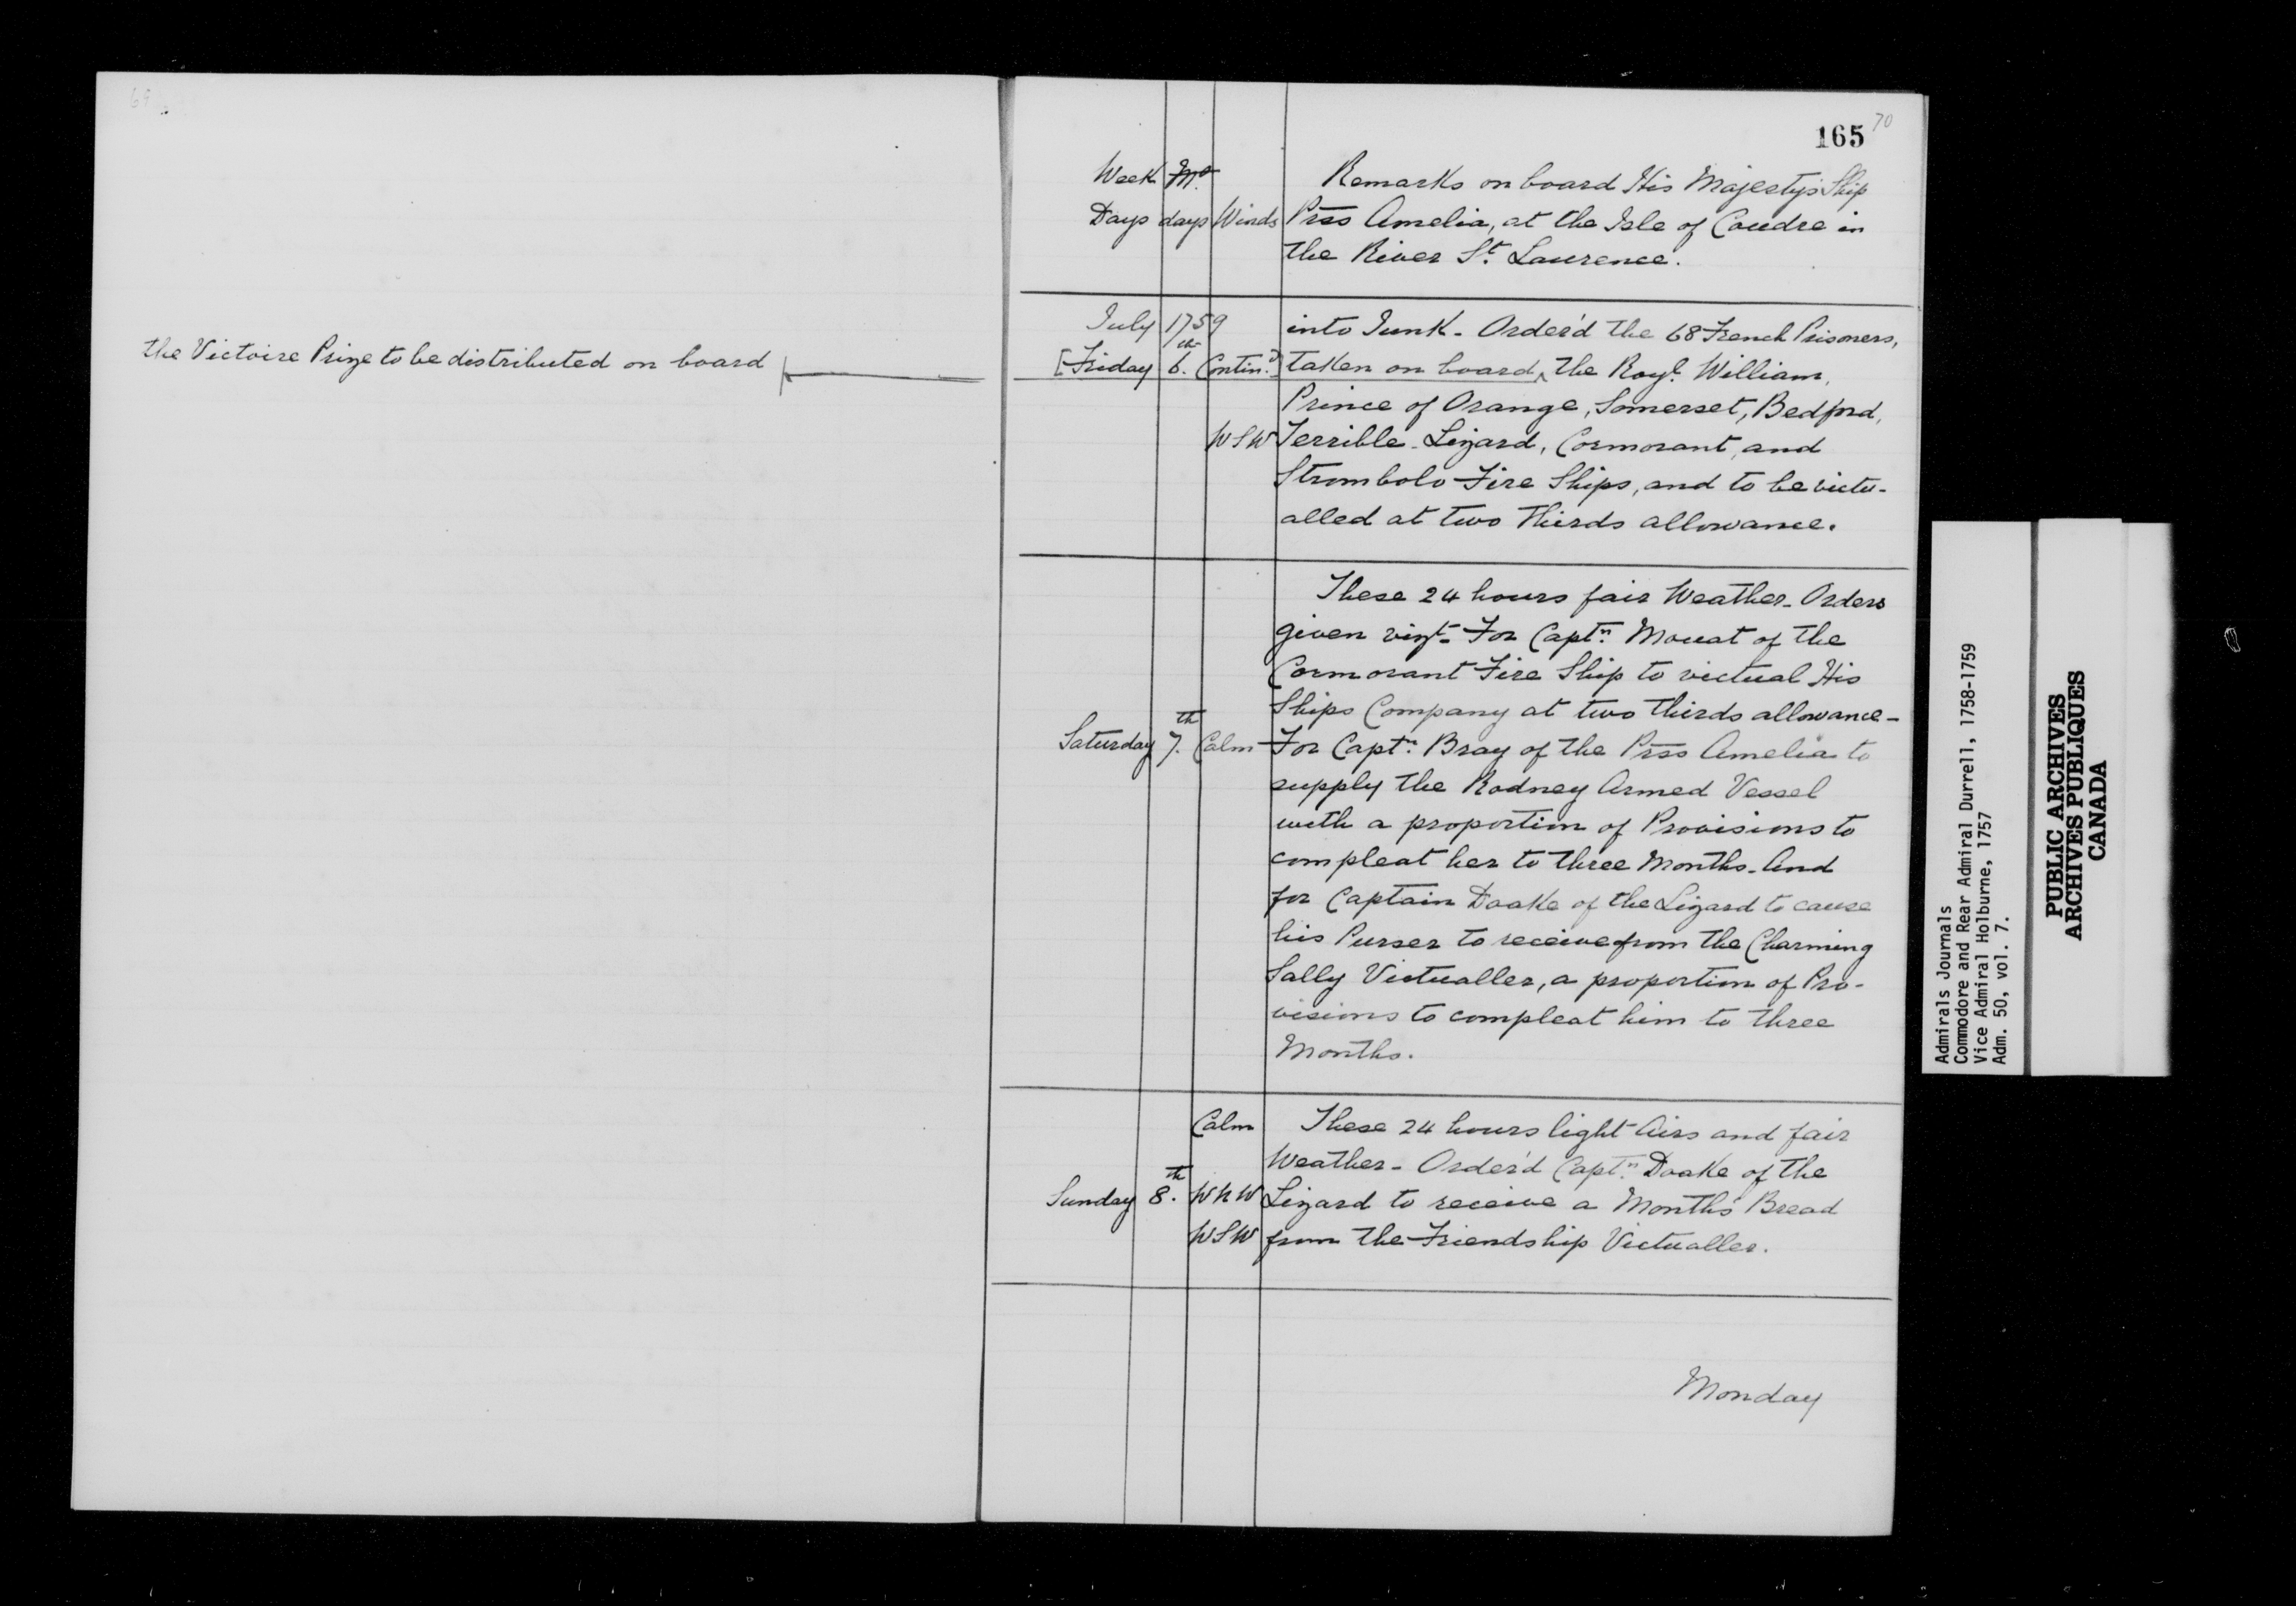 69
the Victoire Prize to be distributed on board
165 70
Week Mo. Remarks on board His Majesty's Ship
Days days Winds Prss Amelia, at the Isle of Coudre in
the River St. Laurence.
July 1759 into Junk - Order'd the 68 French Prisoners,
[Friday 6.th Contin.d] taken on board ^ the Royl. William,
Prince of Orange, Somerset, Bedford,
WSW Terrible - Lizard, Cormorant, and
Strombolo Fire Ships, and to be victu-
alled at two thirds allowance.
These 24 hours fair Weather - Orders
given vizt - For Captn. Mouat of the
Cormorant Fire Ship to victual His
Ships Company at two thirds allowance -
Saturday 7.th Calm For Captn. Bray of the Prss Amelia to
supply the Rodney Armed Vessel
with a proportion of Provisions to
compleat her to three Months - And
for Captain Doake of the Lizard to cause
his Purser to receive from the Charming
Sally Victualler, a proportion of Pro-
visions to compleat him to three
Months.
Calm These 24 hours light Airs and fair
Weather - Order'd Captn. Doake of the
Sunday 8.th WNW Lizard to receive a Months Bread
WSW from the Friendship Victualler.
Monday
Admirals Journals
Commodore and Rear Admiral Durrell, 1758-1759
Vice Admiral Holburne, 1757
Adm. 50, vol. 7.
PUBLIC ARCHIVES
ARCHIVES PUBLIQUES
CANADA